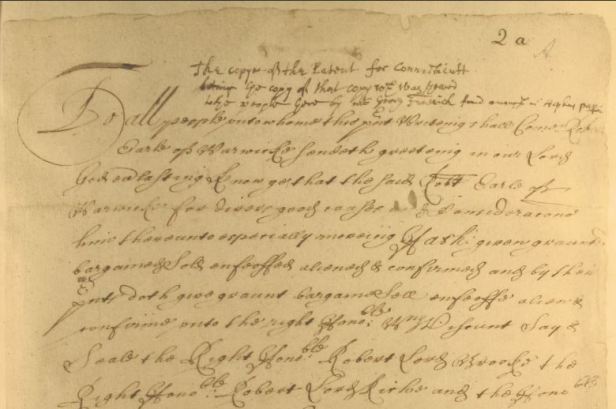 2 a
The copye of the Patent for Connecticutt
being ye copy of that copy wch was shewed
to ye people here by mr George Fenwick found amongst mr Hopkins papers
To all people unto whome this pnt Writeing shall Come Robt
Earle of Warwicke sendeth greeteing in our Lord
God evlasting Know ye that the said Robt Earle of
Warwicke for divers good causes & Considerac̄ons
him thereunto especially moveing Hath given graunted
bargained Sold enfeoffed aliened & confirmed and by these
pnts doth give graunt bargaine Sell enfeoffe alien &
confirme unto the right Honoble Wm Viscount Say &
Seale the Right Honoble Robert Lord Brooke the
Right Honoble Robert Lord Riche and the Honoble